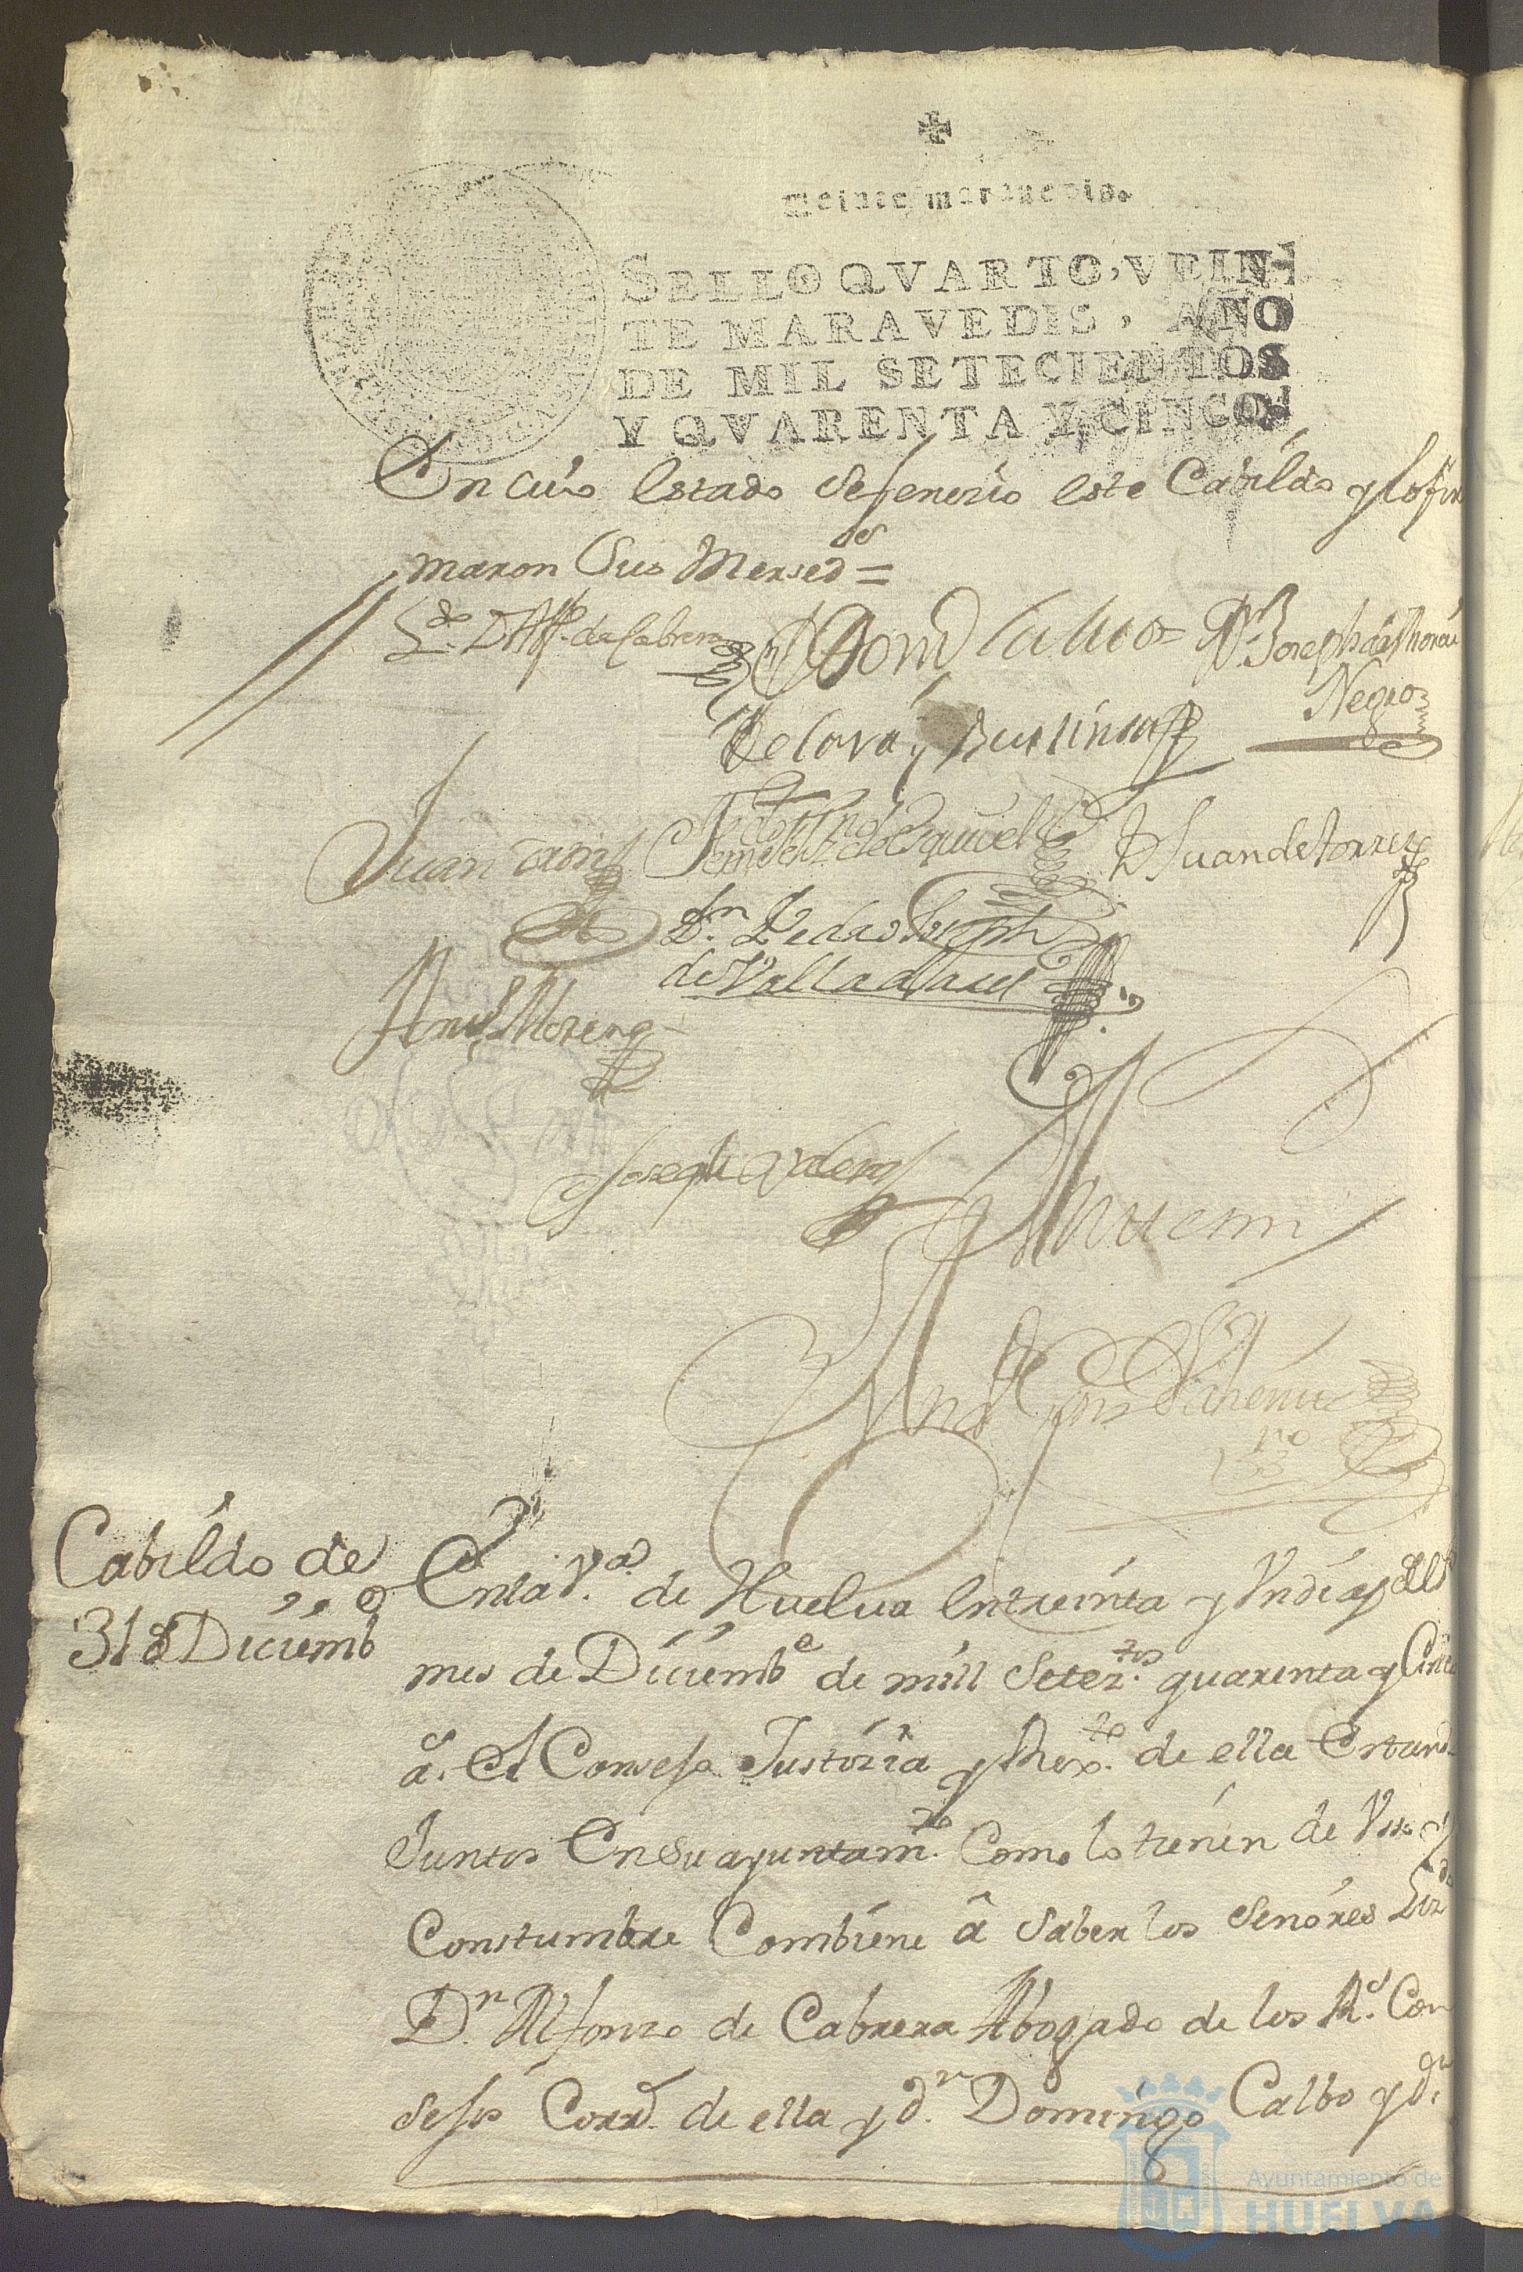 Veinte maravedis.
SELLO QVARTO, VEIN-
TE MARAVEDIS, AÑO
DE MIL SETECIENTOS
Y QVARENTA Y CINCO.
En cuio estado se fenecio este Cabildo y lo fir
maron Sus Mersedes =
Ldo. D. Alf. de Cabrera
Domo Calvo
Dn. Joseph de
Negro
de Cora y
Juan
de Esquivel
D Juan de Torres
Dn. Pedro Joseph
de Valladares
Moreno
Joseph
Cabildo de
31 de Diciembe
En la Va. de Huelva en treinta y Un dias del
mes de Diciembe de mill Seteztos. quarenta y Cinco
as. El Consejo Justizia y Rexto. de ella Estando
Juntos En su ayuntamto. Como lo tienen de Vsso y
Constumbre Combiene â Saber los Señores Lizdo
Dn. Alfonzo de Cabrera Abogado de los Rs. Con
sejos Corrr. de ella y dn. Domingo Calbo y dn.
Ayuntamiento de
HUELVA